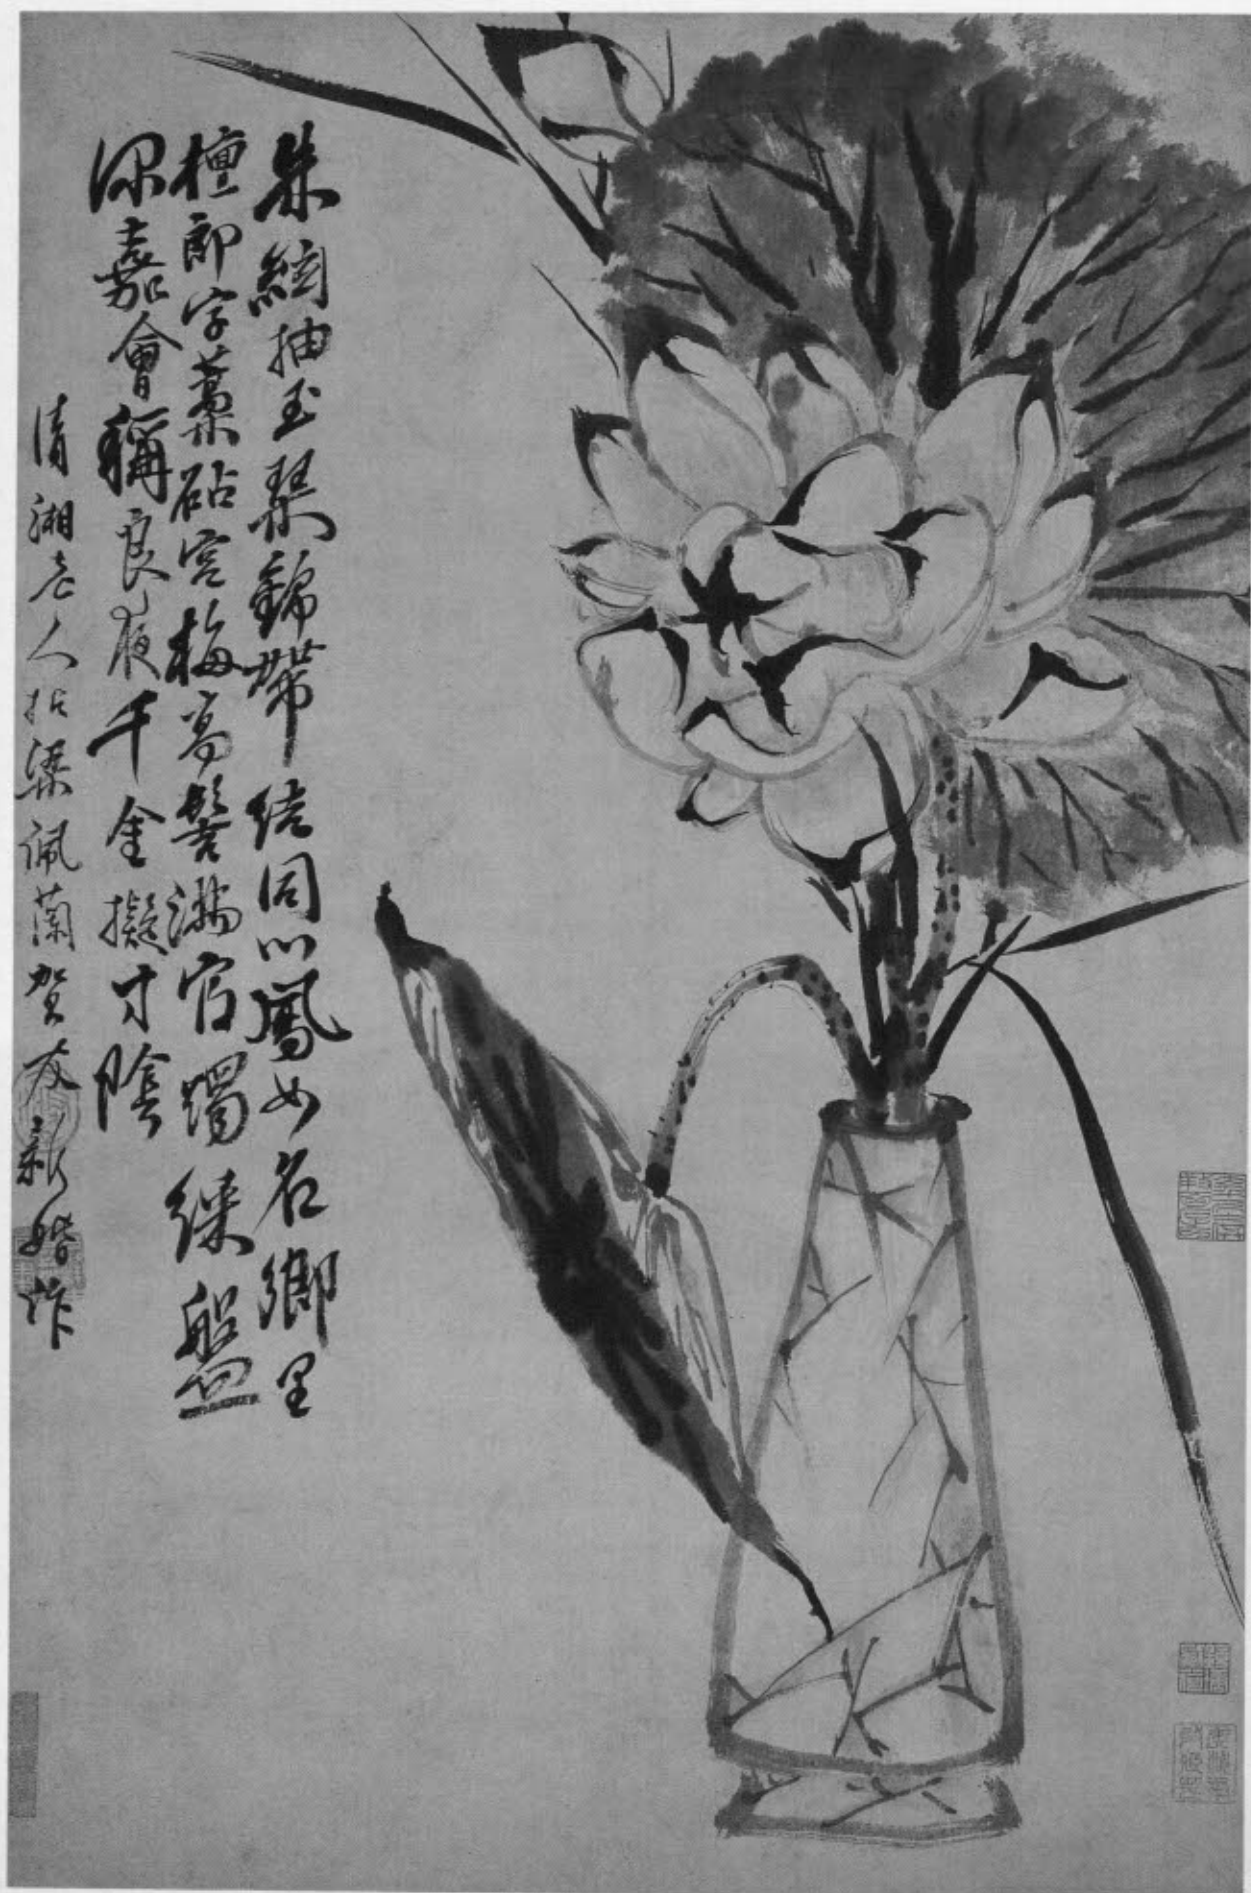 朱抽玉琴錦帶結同心鳳女名鄉里
檀郎字藁砧宮梅高髻滿官燭盤
深嘉會稱良夜千金擬寸陰
清湘老人拈梁珮蘭賀友新婚作